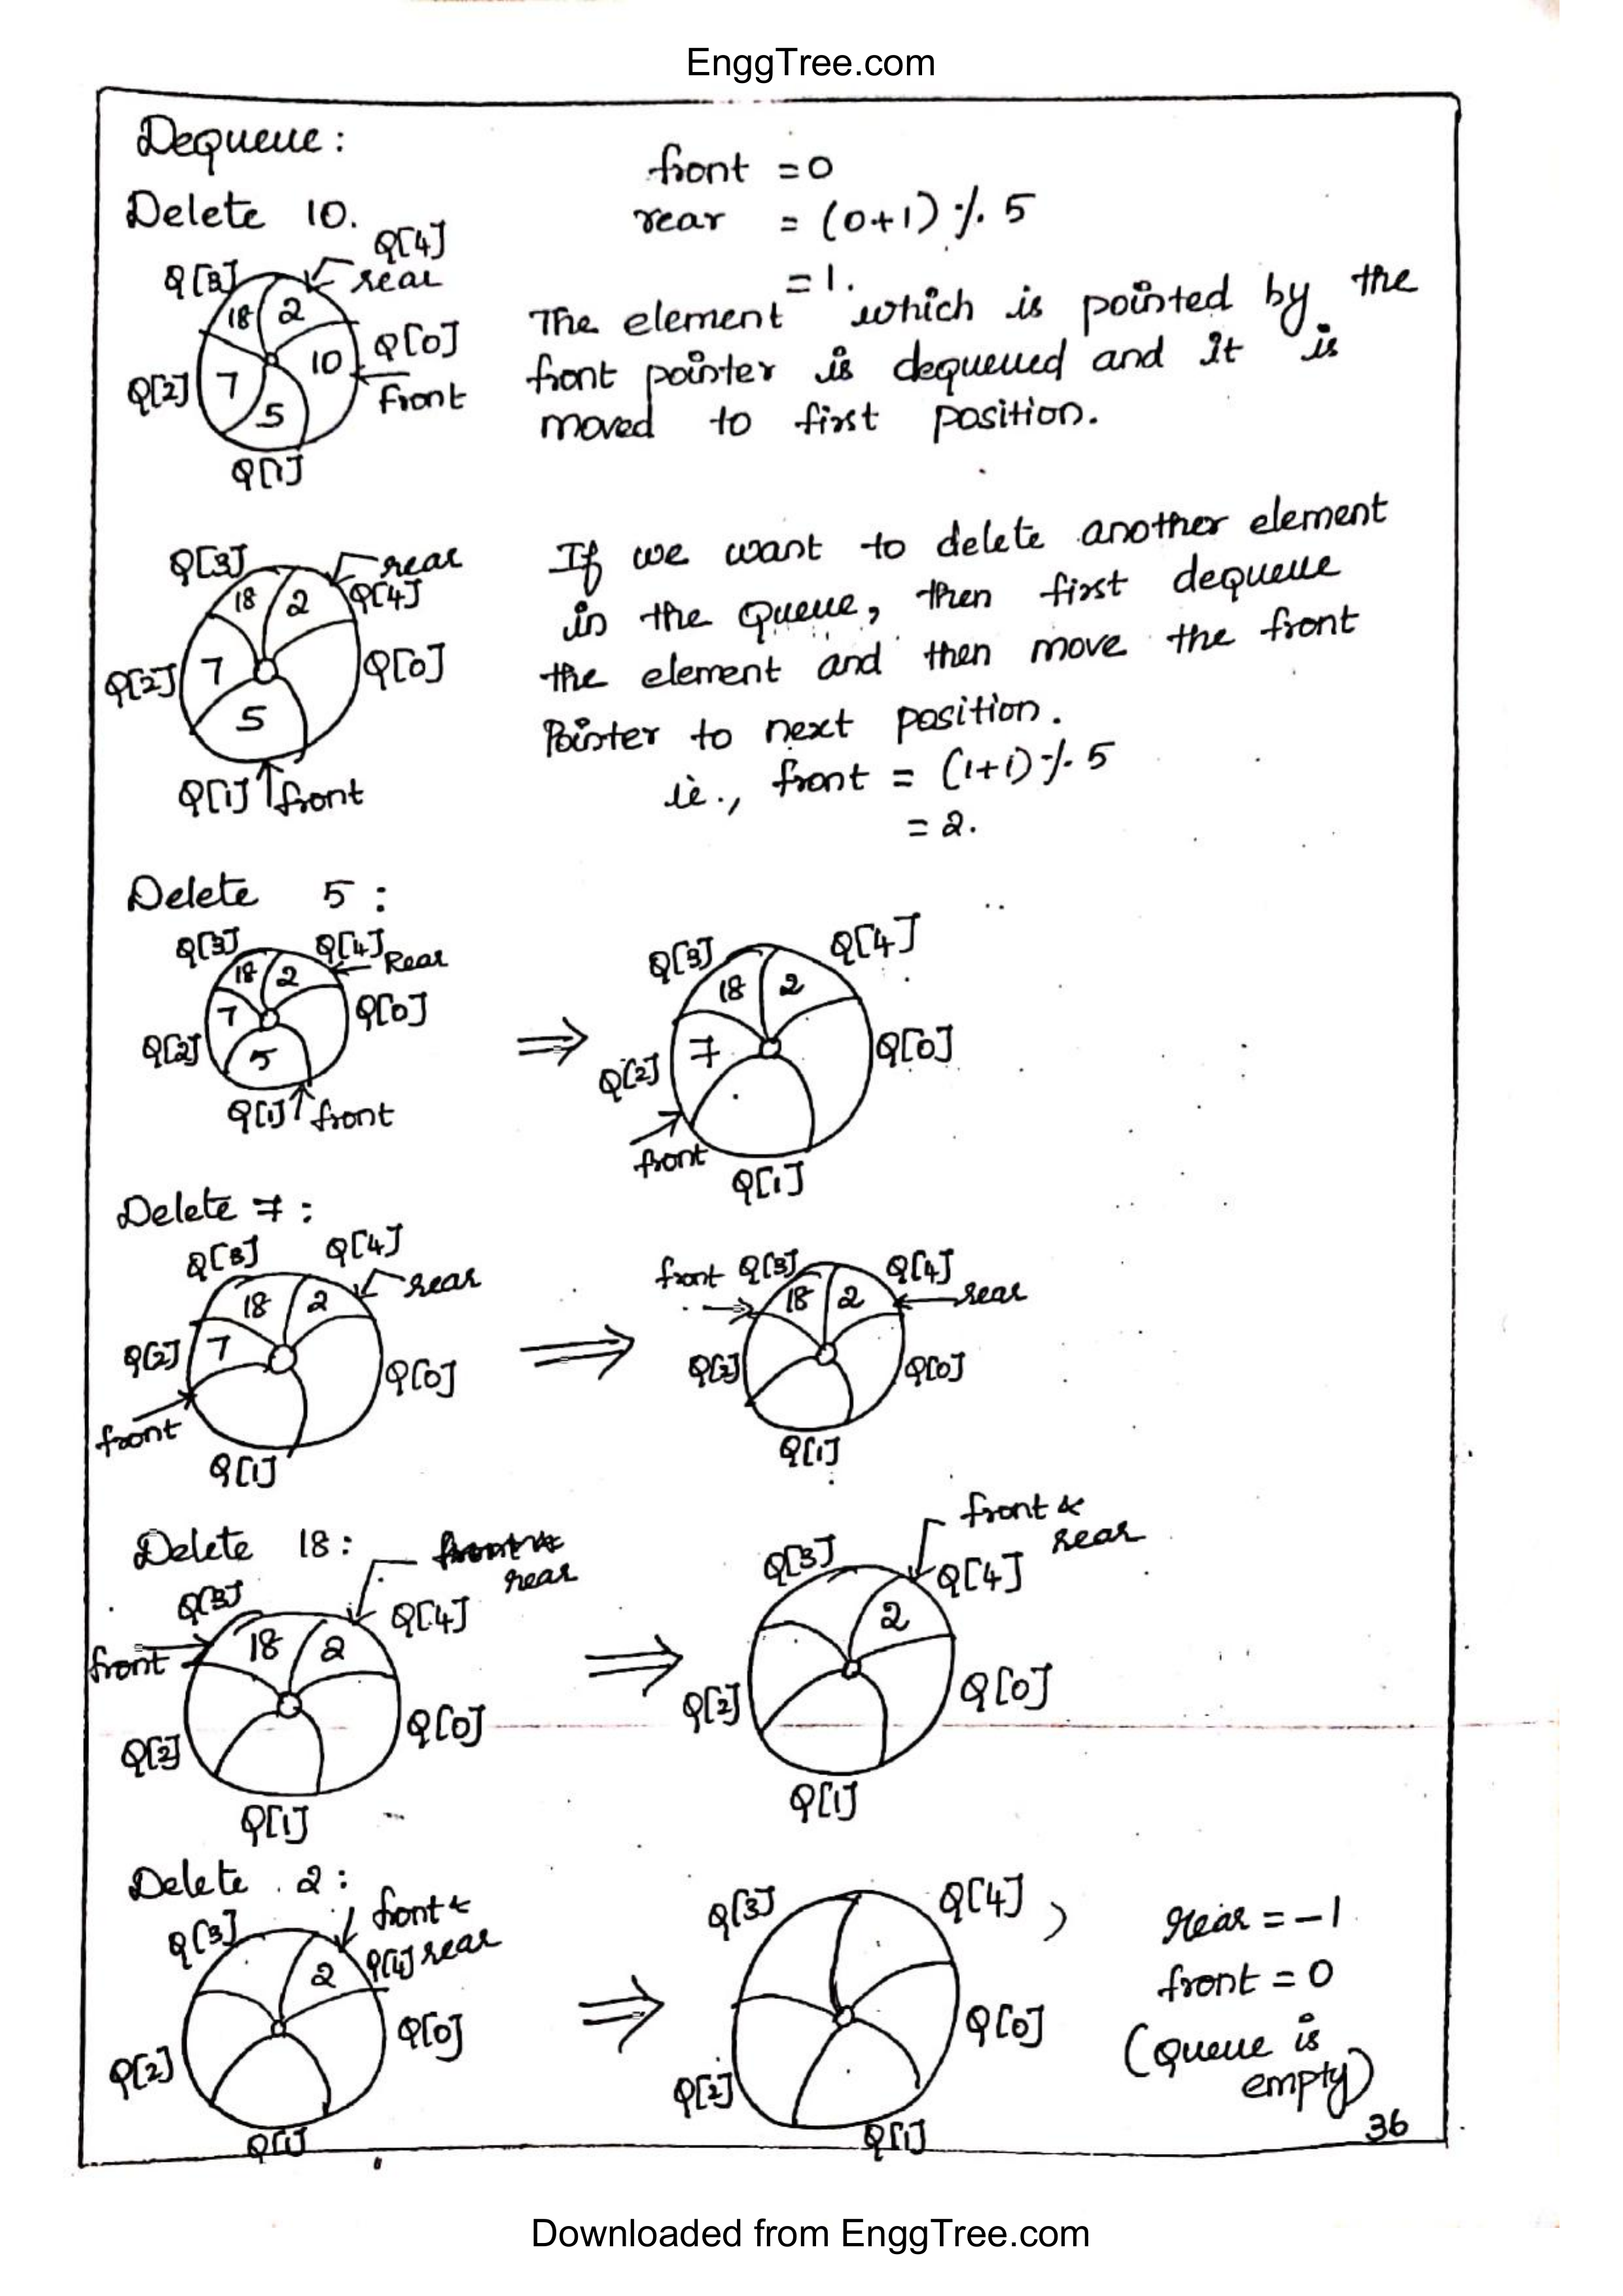 EnggTree.com
Dequeue:
Delete 10.
front = 0
rear = (0+1) % 5
= 1.
Q[4]
rear
Q[3]
18
2
Q[0]
10
front
Q[2]
7
5
Q[1]
The element which is pointed by the
front pointer is dequeued and it is
moved to first position.
Q[3]
rear
Q[4]
18
2
Q[2]
7
Q[0]
5
Q[1] front
If we want to delete another element
in the Queue, then first dequeue
the element and then move the front
Pointer to next position.
ie., front = (1+1) % 5
= 2.
Delete 5:
Q[3]
Q[4]
Rear
18
2
7
Q[0]
Q[2]
5
Q[1] front
⇒
Q[3]
Q[4]
18
2
7
Q[0]
Q[2]
front
Q[1]
Delete 7:
Q[3]
Q[4]
rear
18
2
Q[2]
7
Q[0]
front
Q[1]
⇒
front Q[3]
Q[4]
rear
18
2
Q[2]
Q[0]
Q[1]
Delete 18:
front &
rear
Q[3]
Q[4]
front
18
2
Q[2]
Q[0]
Q[1]
⇒
front &
rear
Q[3]
Q[4]
2
Q[2]
Q[0]
Q[1]
Delete 2:
front &
rear
Q[3]
Q[4]
2
Q[0]
Q[2]
Q[1]
⇒
Q[3]
Q[4] )
Q[0]
Q[2]
Q[1]
rear = -1
front = 0
(Queue is
empty)
36
Downloaded from EnggTree.com